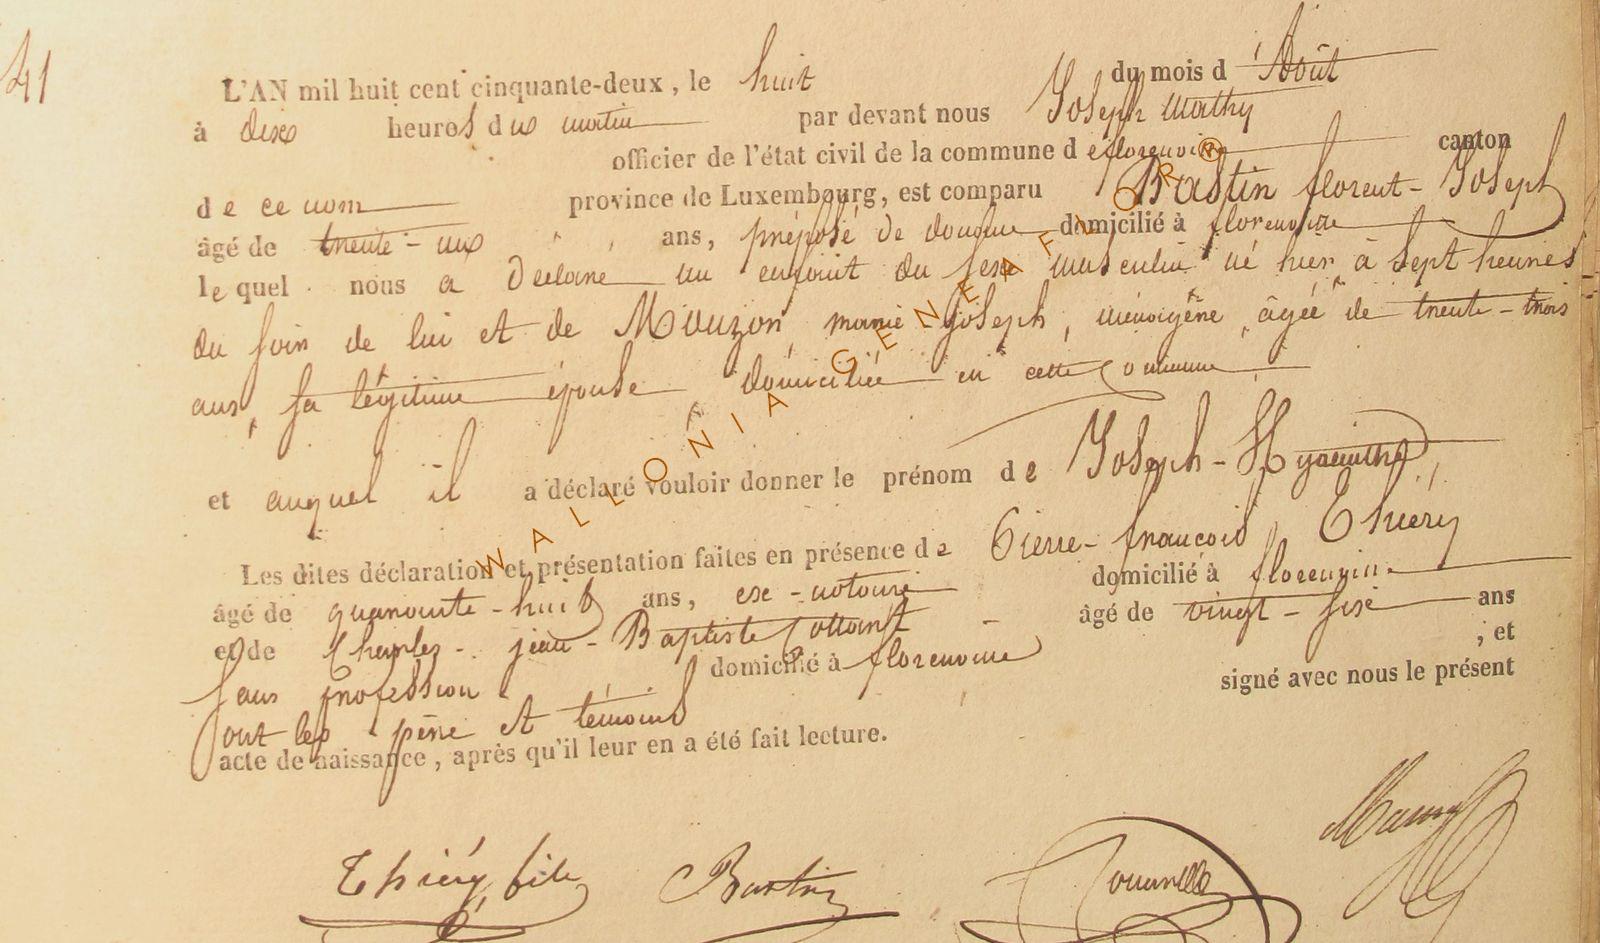 41
L'AN mil huit cent cinquante-deux, le huit du mois d'Août
à dix heures du matin par devant nous Joseph Mathy
officier de l'état civil de la commune de florenville canton
de ce nom province de Luxembourg, est comparu Bastin florent-Joseph
âgé de trente-un ans, préposé de douane domicilié à florenville
lequel nous a déclaré un enfant du sexe masculin né hier à Sept heures
du soir de lui et de Mouzon, marie Joseph, ménagère, âgée de trente-trois
ans, sa légitime épouse domiciliée en cette Commune
et auquel il a déclaré vouloir donner le prénom de Joseph-Hyacinthe,
Les dites déclaration et présentation faites en présence de Pierre-françois Thiéry
âgé de quarante-huit ans, ex-notaire domicilié à florenvil.
et de Charles-jean-Baptiste âgé de vingt-six ans
sans profession domicilié à florenville ; et
ont les père et témoins signé avec nous le présent
acte de naissance, après qu'il leur en a été fait lecture.
Thiéry, file Bastin
WALLONIA GENEAFLOR®